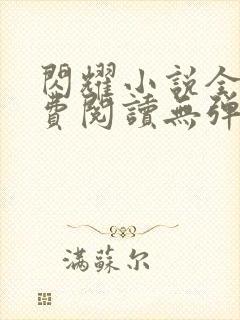 閃耀小說全
費閱讀無彈
满蘇尔